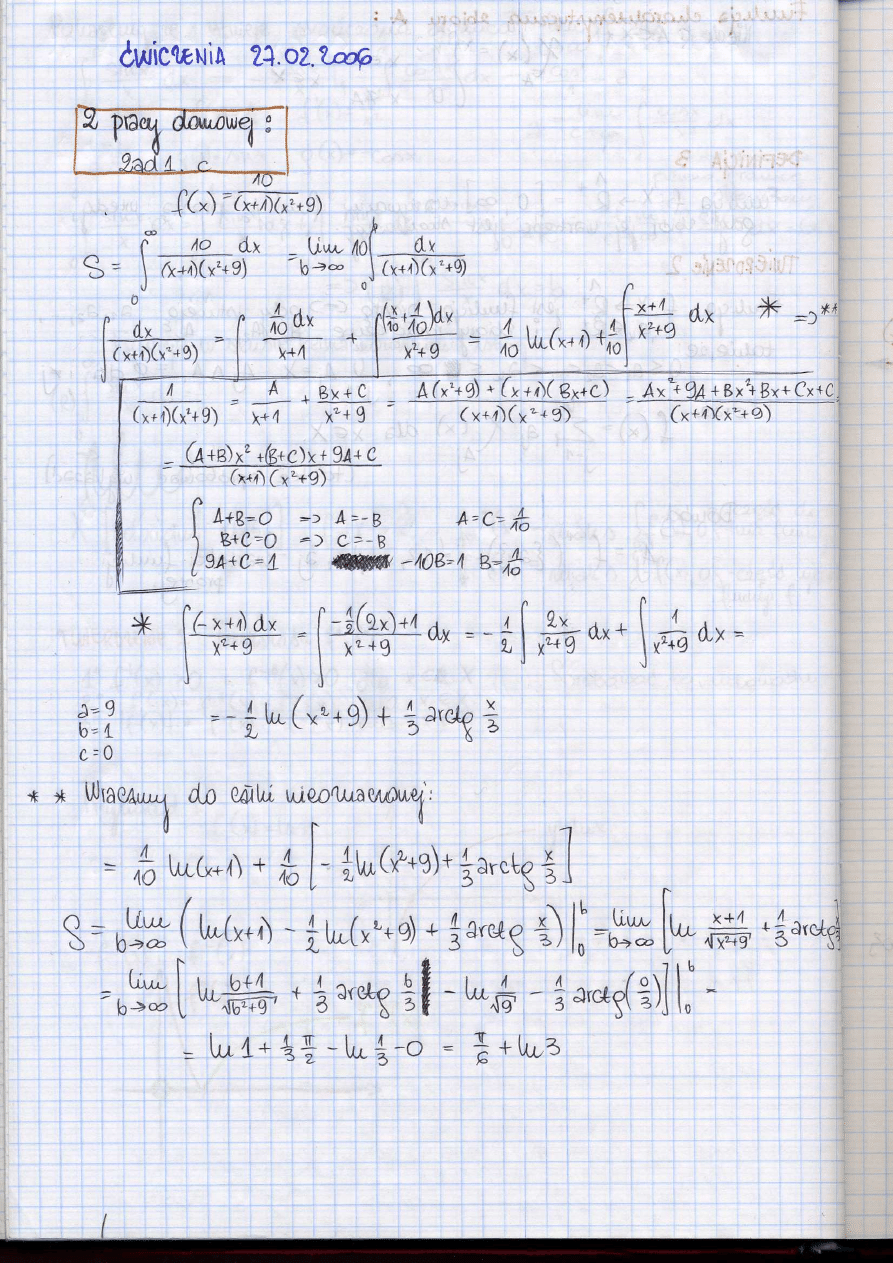 ĆWICZENIA 27.02.2006
Z pracy domowej:
Zad 1. c
f(x) = 10/((x+1)(x²+9))
S = ∫₀^∞ 10 dx/((x+1)(x²+9)) = lim b→∞ 10 ∫₀^b dx/((x+1)(x²+9))
∫ dx/((x+1)(x²+9)) = ∫ (1/10 dx)/(x+1) + ∫ ((x/10 + 1/10)dx)/(x²+9) = 1/10 ln(x+1) + 1/10 ∫ (-x+1)/(x²+9) dx * => **
1/((x+1)(x²+9)) = A/(x+1) + (Bx+C)/(x²+9) = (A(x²+9) + (x+1)(Bx+C))/((x+1)(x²+9)) = (Ax²+9A+Bx²+Bx+Cx+C)/((x+1)(x²+9))
= ((A+B)x² + (B+C)x + 9A+C)/((x+1)(x²+9))
{ A+B=0 => A=-B A=C=1/10
B+C=0 => C=-B
9A+C=1 -10B=1 B=1/10
* ∫ (-x+1)dx/(x²+9) = ∫ (-1/2(2x)+1)/(x²+9) dx = -1/2 ∫ 2x/(x²+9) dx + ∫ 1/(x²+9) dx =
a=9
b=1
c=0
= -1/2 ln(x²+9) + 1/3 arctg x/3
** Wracamy do całki nieoznaczonej:
= 1/10 ln(x+1) + 1/10 [-1/2 ln(x²+9) + 1/3 arctg x/3]
S = lim b→∞ (ln(x+1) - 1/2 ln(x²+9) + 1/3 arctg x/3)|₀^b = lim b→∞ [ln (x+1)/√(x²+9) + 1/3 arctg
= lim b→∞ [ln (b+1)/√(b²+9) + 1/3 arctg b/3 - ln 1/√9 - 1/3 arctg(0/3)]|₀^b =
= ln 1 + 1/3 π/2 - ln 1/3 - 0 = π/6 + ln 3